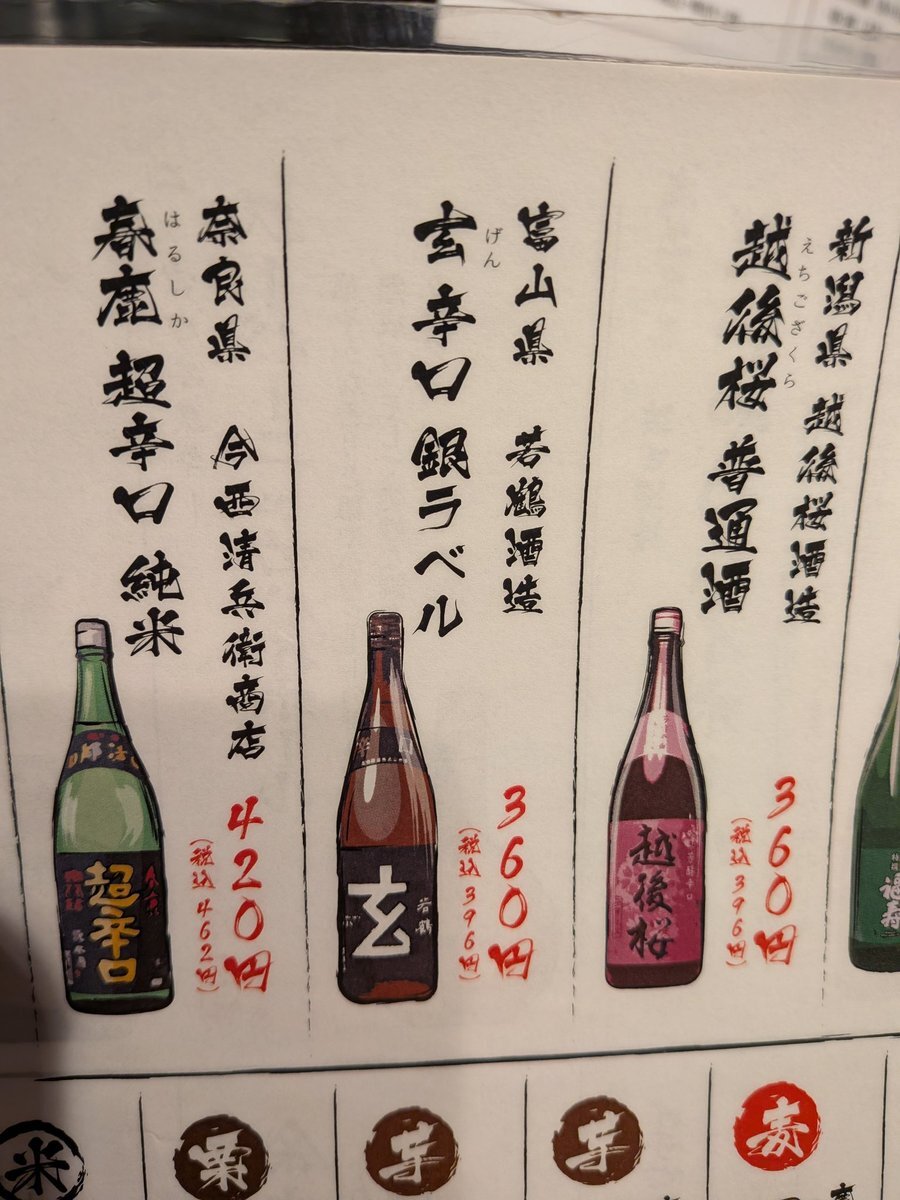 新潟県 越後桜酒造
えちござくら
越後桜 普通酒
360円
(税込396円)
越後桜
富山県 若鶴酒造
げん
玄 辛口 銀ラベル
360円
(税込396円)
玄
若鶴
奈良県 今西清兵衛商店
はるしか
春鹿 超辛口 純米
420円
(税込462円)
超辛口
麦
芋
芋
栗
米